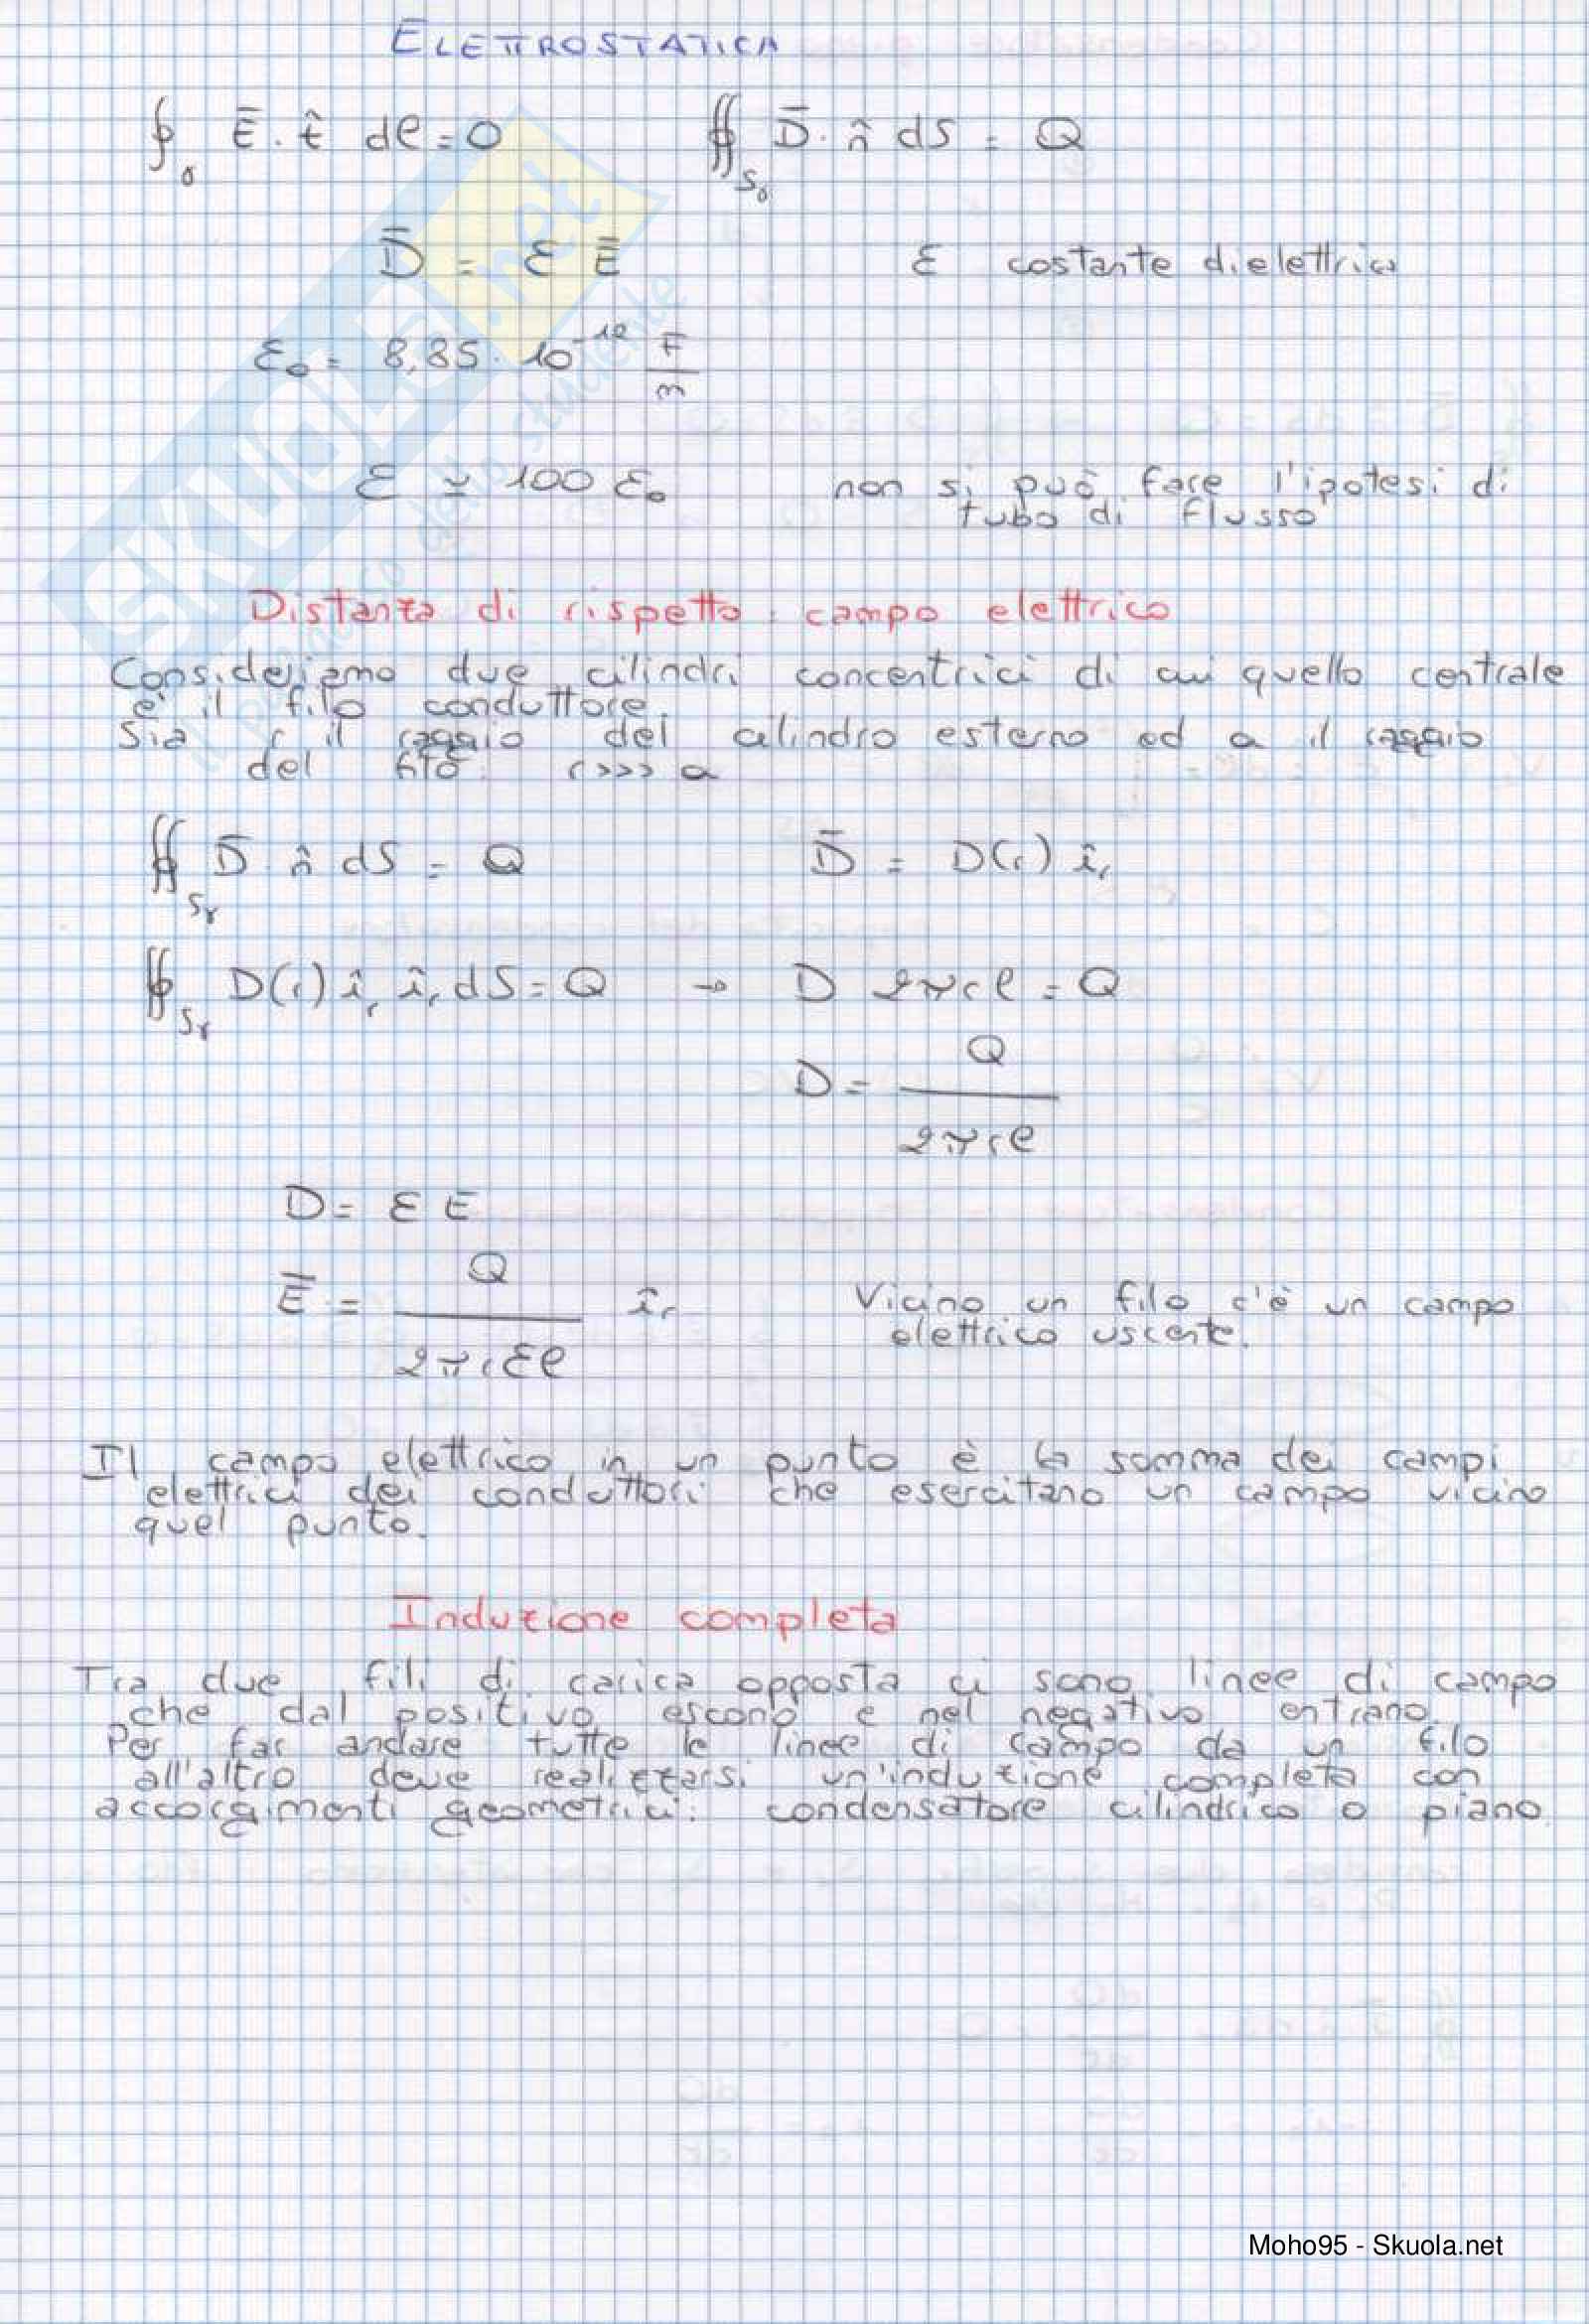 ELETTROSTATICA
∮γ Ē · t̂ dl = 0   ∯Sγ D̄ · n̂ dS = Q
D̄ = ε Ē   ε costante dielettrica
ε₀ = 8,85 · 10⁻¹² F/m
ε ≃ 100 ε₀   non si può fare l'ipotesi di
tubo di flusso
Distanza di rispetto: campo elettrico
Consideriamo due cilindri concentrici di cui quello centrale
è il filo conduttore.
Sia r il raggio del cilindro esterno ed a il raggio
del filo. r >>> a
∯Sγ D̄ · n̂ dS = Q   D̄ = D(r) îr
∯Sγ D(r) îr îr dS = Q → D 2πrl = Q
D = Q / 2πrl
D = ε E
Ē = Q / 2πrεl îr   Vicino un filo c'è un campo
elettrico uscente.
Il campo elettrico in un punto è la somma dei campi
elettrici dei conduttori che esercitano un campo vicino
quel punto.
Induzione completa
Tra due fili di carica opposta ci sono linee di campo
che dal positivo escono e nel negativo entrano.
Per far andare tutte le linee di campo da un filo
all'altro deve realizzarsi un'induzione completa con
accorgimenti geometrici: condensatore cilindrico o piano.
SKUOLA.net
il paradiso dello studente
Moho95 - Skuola.net